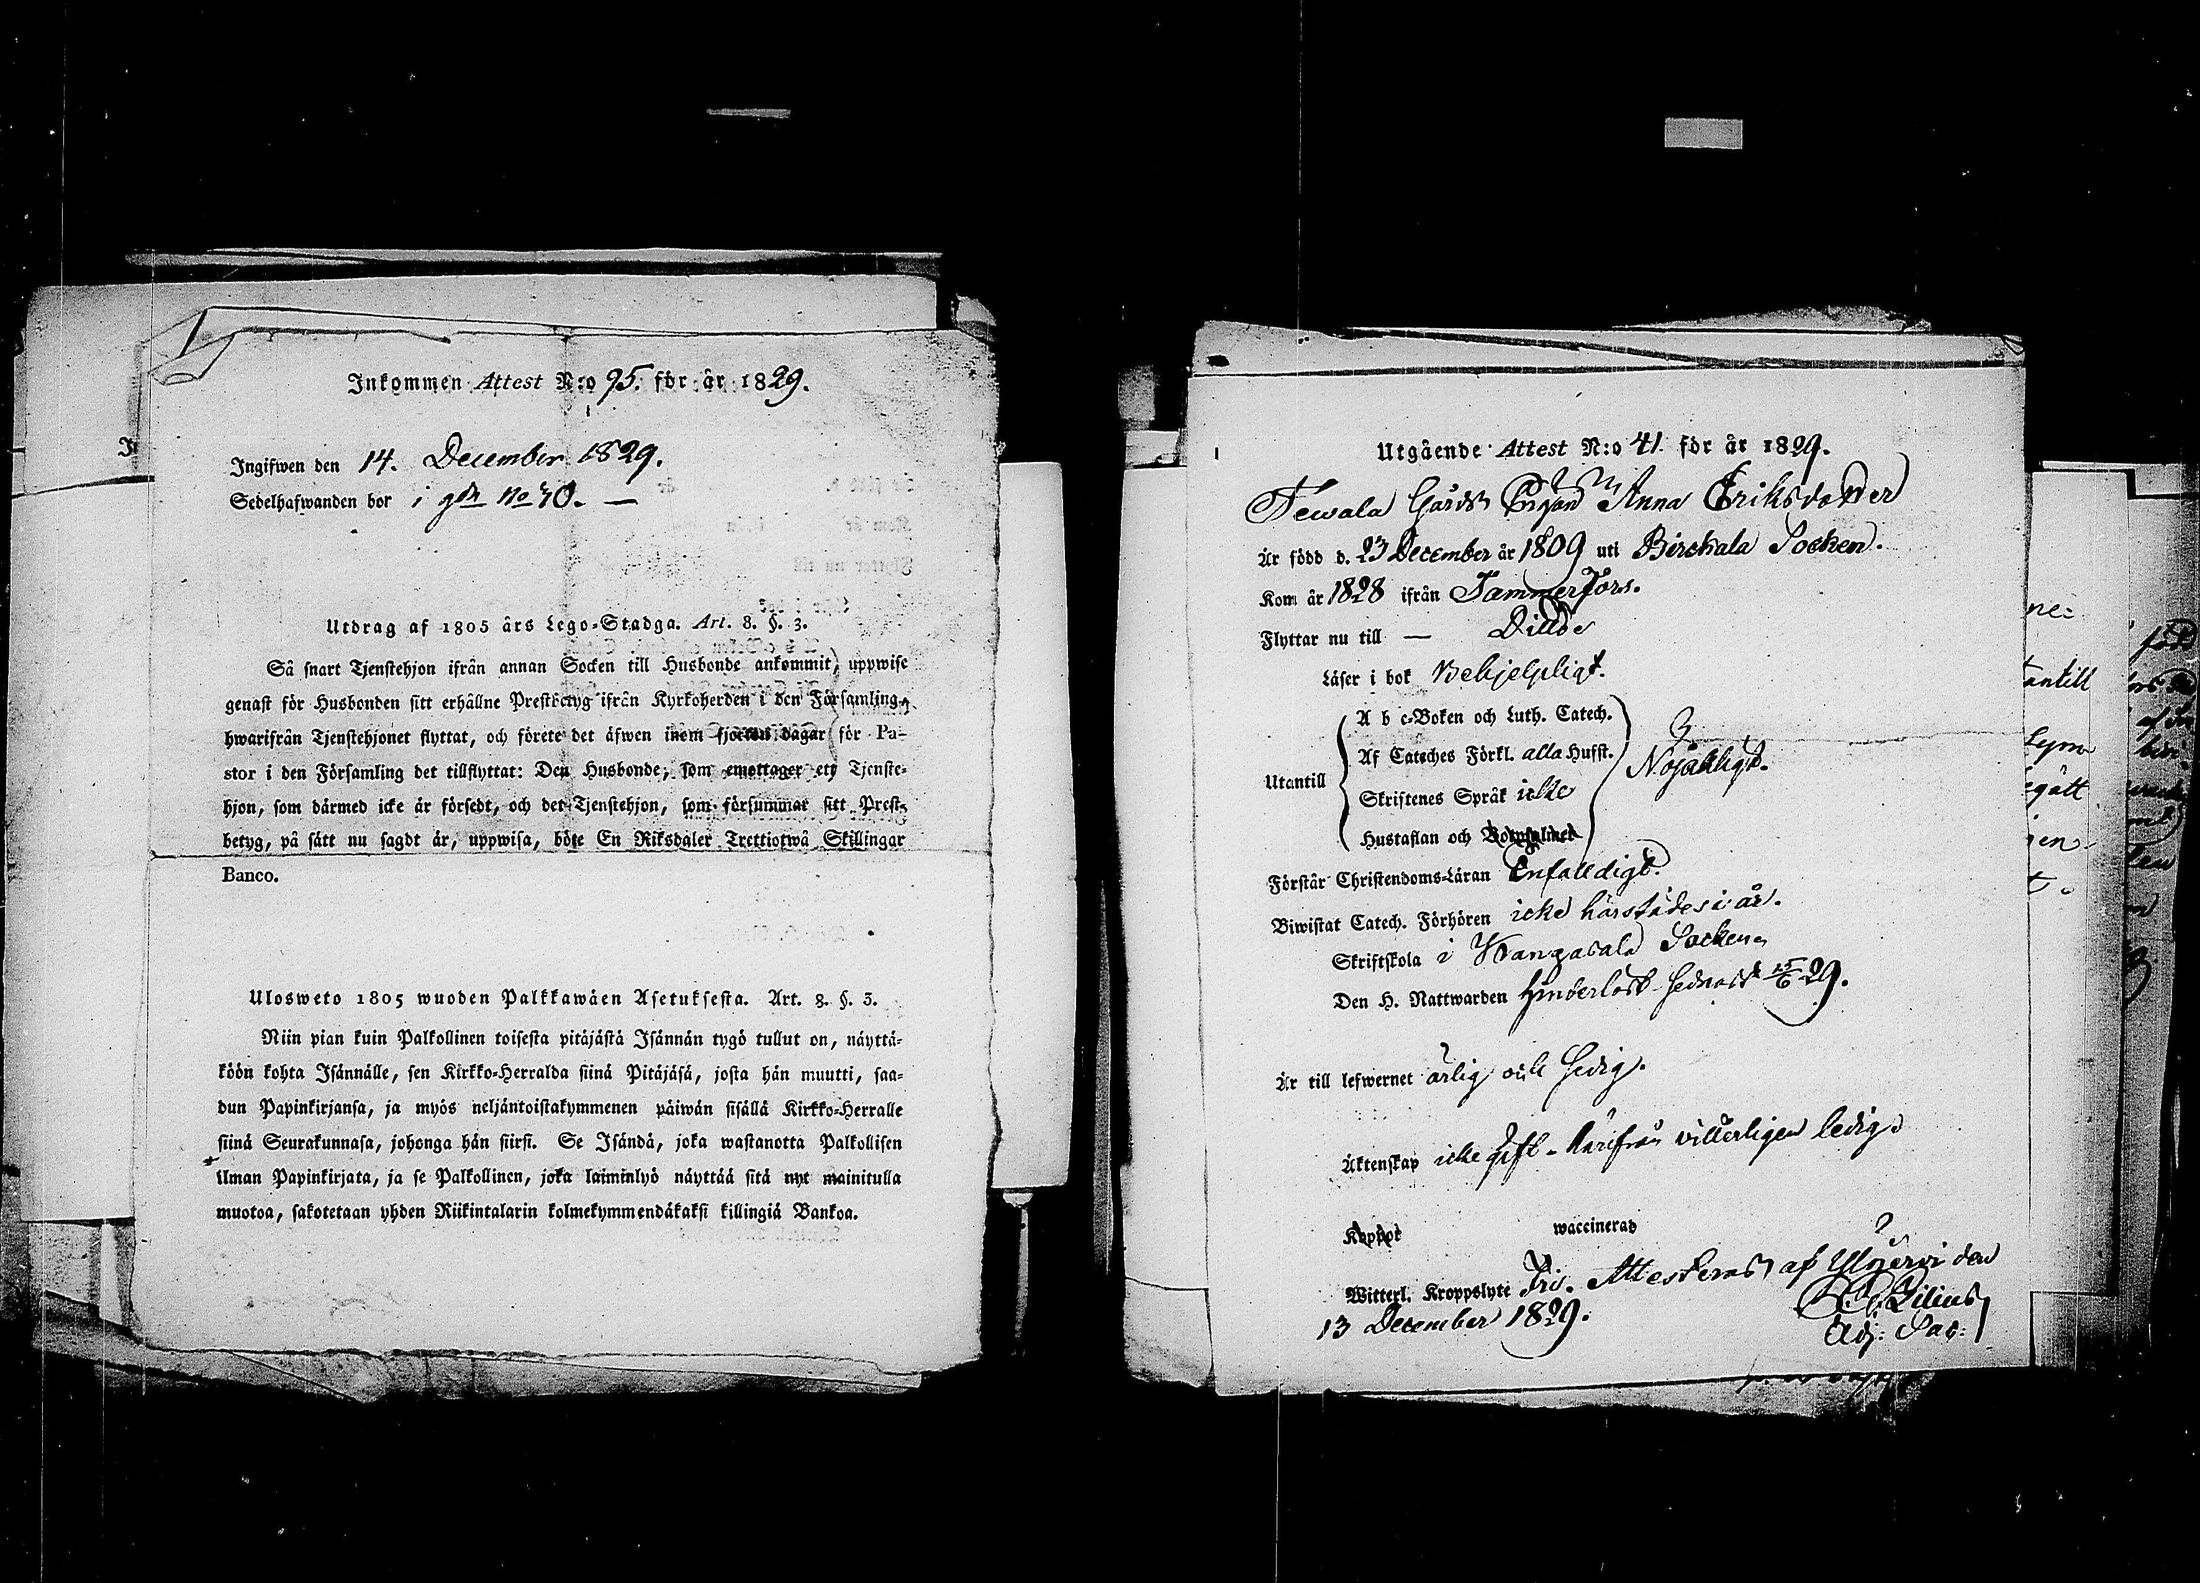 Inkommen Attest N:o 95. för år 1829.
Ingifwen den 14. December 1829.
Sedelhafwanden bor i gdn No 40. —
Utdrag af 1805 års Lego-Stadga. Art. 8. §. 3.
Så snart Tjenstehjon ifrån annan Socken till Husbonde ankommit, uppwise
genast för Husbonden sitt erhållne Prestbetyg ifrån Kyrkoherden i den Församling,
hwarifrån Tjenstehjonet flyttat, och förete det äfwen inom fjorton dagar för Pa-
stor i den Församling det tillflyttat: Den Husbonde, som emottager ett Tjenste-
hjon, som därmed icke är försedt, och det Tjenstehjon, som försummar sitt Prest-
betyg, på sätt nu sagdt är, uppwisa, böte En Riksdaler Trettiotwå Skillingar
Banco.
Ulosweto 1805 wuoden Palkkawäen Asetuksesta. Art. 8. §. 3.
Niin pian kuin Palkollinen toisesta pitäjästä Isännän tygö tullut on, näyttä-
köön kohta Isännälle, sen Kirkko-Herralda siinä Pitäjäsä, josta hän muutti, saa-
dun Papinkirjansa, ja myös neljäntoistakymmenen päiwän sisällä Kirkko-Herralle
siinä Seurakunnasa, johonga hän siirsi. Se Isändä, joka wastanotta Palkollisen
ilman Papinkirjata, ja se Palkollinen, joka laiminlyö näyttää sitä nyt mainitulla
muotoa, sakotetaan yhden Riikintalarin kolmekymmendäkaksi killingiä Bankoa.
Utgående Attest N:o 41 för år 1829.
Tewala Gårds Pigan Anna Eriksdotter
Är född d. 23 December år 1809 uti Birckala Socken.
Kom år 1828 ifrån Tammerfors.
Flyttar nu till — Ditto
Läser i bok Behjelpligt.
Utantill
A b c-Boken och Luth. Catech.
Af Cateches Förkl. alla Hufst.
Skriftenes Språk icke
Hustaflan och Botpsalmer
Nöjaktligt.
Förstår Christendoms-Läran Enfaldigt.
Biwistat Catech. Förhören icke härstädes i år.
Skriftskola i Kangasala Socken
Den H. Nattwarden hinderlöst sednast 25/6 29.
Är till lefwernet ärlig och sedig.
Äktenskap icke gift - härifrån vitterligen ledig.
Koppor waccinerad
Witterl. Kroppslyte fri. Attesteras af Ylöjerwi den
13 December 1829.
Zilius
Adj: Sac: